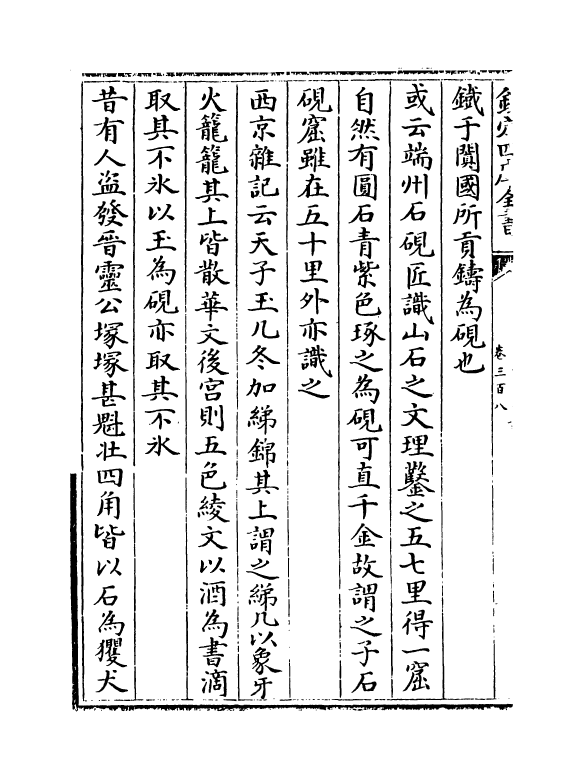 欽定四庫全書
卷三百八
鐵于闐國所貢鑄為硯也
或云端州石硯匠識山石之文理鑿之五七里得一窟
自然有圓石青紫色琢之為硯可直千金故謂之子石
硯窟雖在五十里外亦識之
西京雜記云天子玉几冬加綈錦其上謂之綈几以象牙
火籠籠其上皆散華文後宮則五色綾文以酒為書滴
取其不氷以玉為硯亦取其不氷
昔有人盜發晉靈公塚塚甚魁壯四角皆以石為玃犬